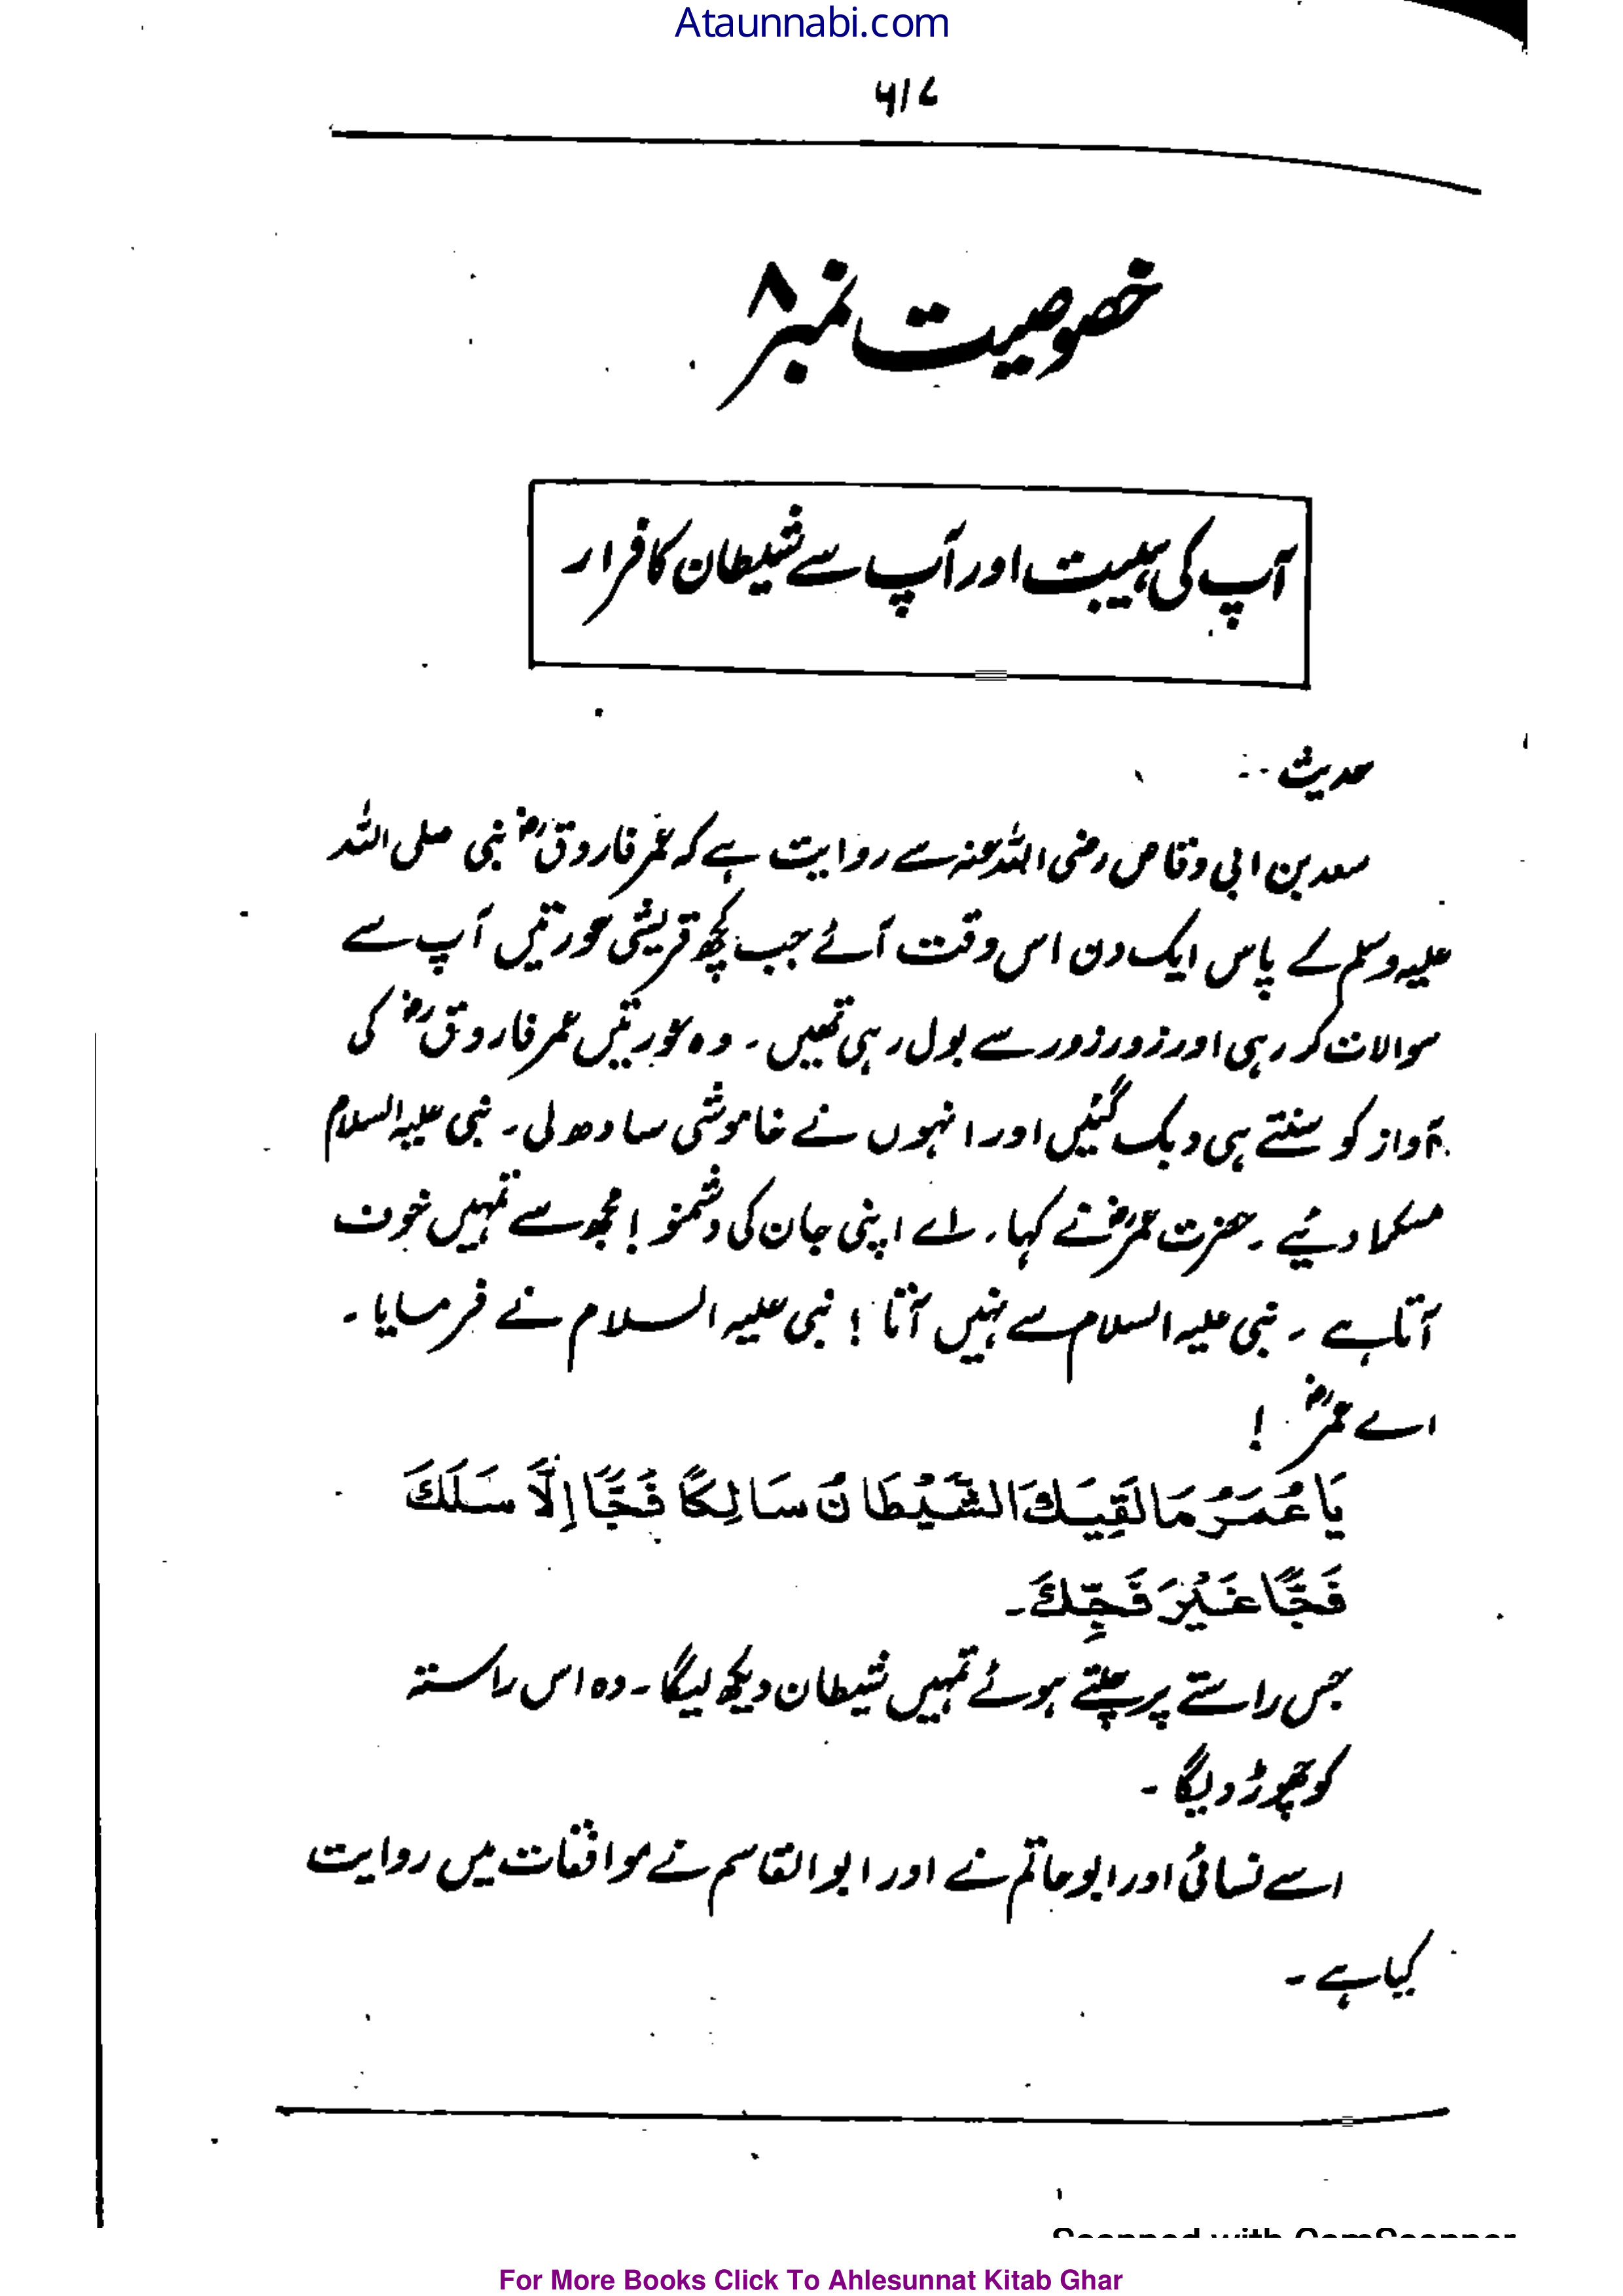 Ataunnabi.com
۶۱۷
خصوصیت نمبر ۸
آپ کی ہیبت اور آپ سے شیطان کا فرار
حدیث :-
سعد بن ابی وقاص رضی اللہ عنہ سے روایت ہے کہ عمر فاروقؓ نبی صلی اللہ
علیہ وسلم کے پاس ایک دن اس وقت آئے جب کچھ قریشی عورتیں آپ سے
سوالات کر رہی اور زور زور سے بول رہی تھیں۔ وہ عورتیں عمر فاروقؓ کی
آواز کو سنتے ہی دبک گئیں اور انہوں نے خاموشی سادھ لی۔ نبی علیہ السلام
مسکرا دئیے۔ حضرت عمرؓ نے کہا، اے اپنی جان کی دشمنو! مجھ سے تمہیں خوف
آتا ہے۔ نبی علیہ السلام سے نہیں آتا! نبی علیہ السلام نے فرمایا۔
اے عمرؓ !
يَا عُمَرُ مَا لَقِيَكَ الشَّيْطَانُ سَالِكًا فَجًّا اِلَّا سَلَكَ
فَجًّا غَيْرَ فَجِّكَ۔
جس راستے پر چلتے ہوئے تمہیں شیطان دیکھ لیگا۔ وہ اس راستہ
کو چھوڑ دیگا۔
اسے نسائی اور ابو حاتم نے اور ابو القاسم نے موافقات میں روایت
کیا ہے۔
Scanned with CamScanner
For More Books Click To Ahlesunnat Kitab Ghar